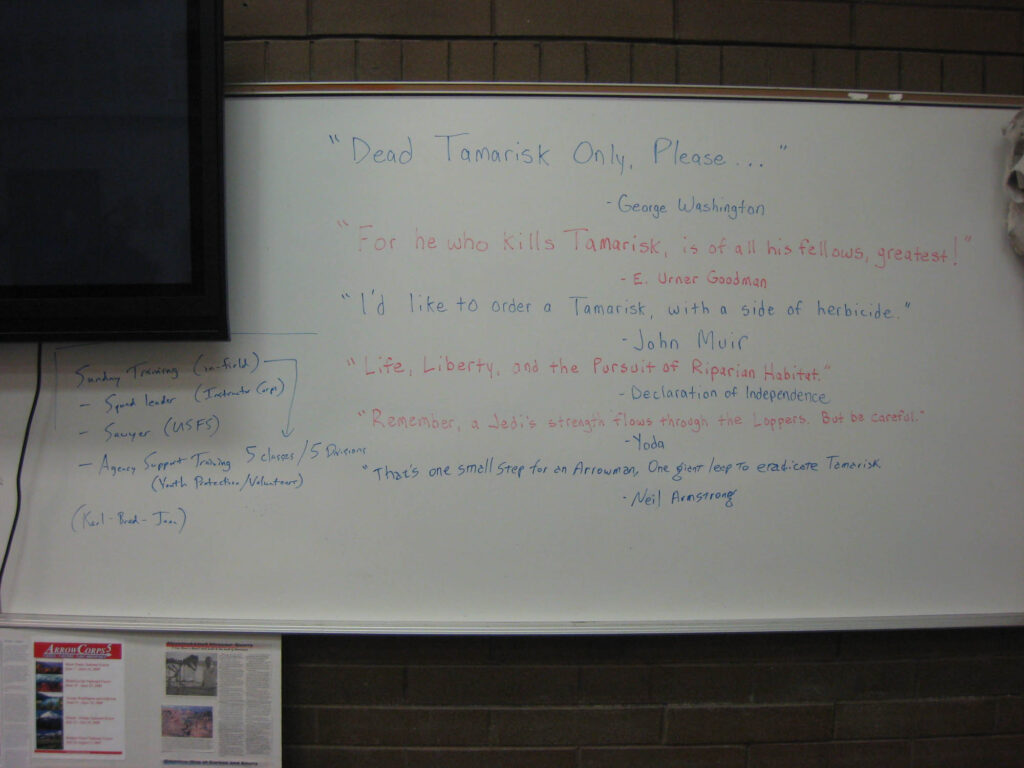 "Dead Tamarisk Only, Please..."
- George Washington
"For he who kills Tamarisk, is of all his fellows, greatest!"
- E. Urner Goodman
"I'd like to order a Tamarisk, with a side of herbicide."
- John Muir
"Life, Liberty, and the Pursuit of Riparian Habitat."
- Declaration of Independence
"Remember, a Jedi's strength flows through the Loppers. But be careful."
- Yoda
"That's one small step for an Arrowman, One giant leap to eradicate Tamarisk
- Neil Armstrong
Sunday Training (in-field)
- Squad leader (Instructor Corps)
- Sawyer (USFS)
- Agency Support Training 5 classes/5 Divisions
(Youth Protection/Volunteers)
ARROWCORPS5